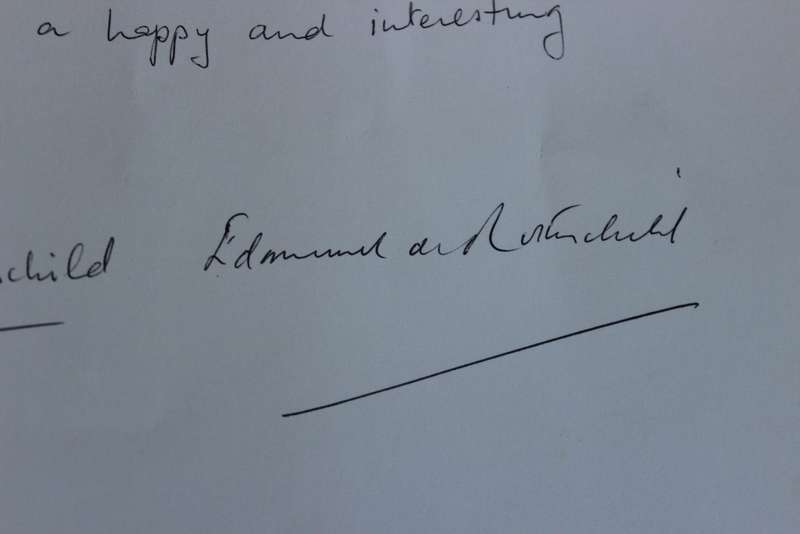 a happy and interesting
schild Edmund de Rothschild